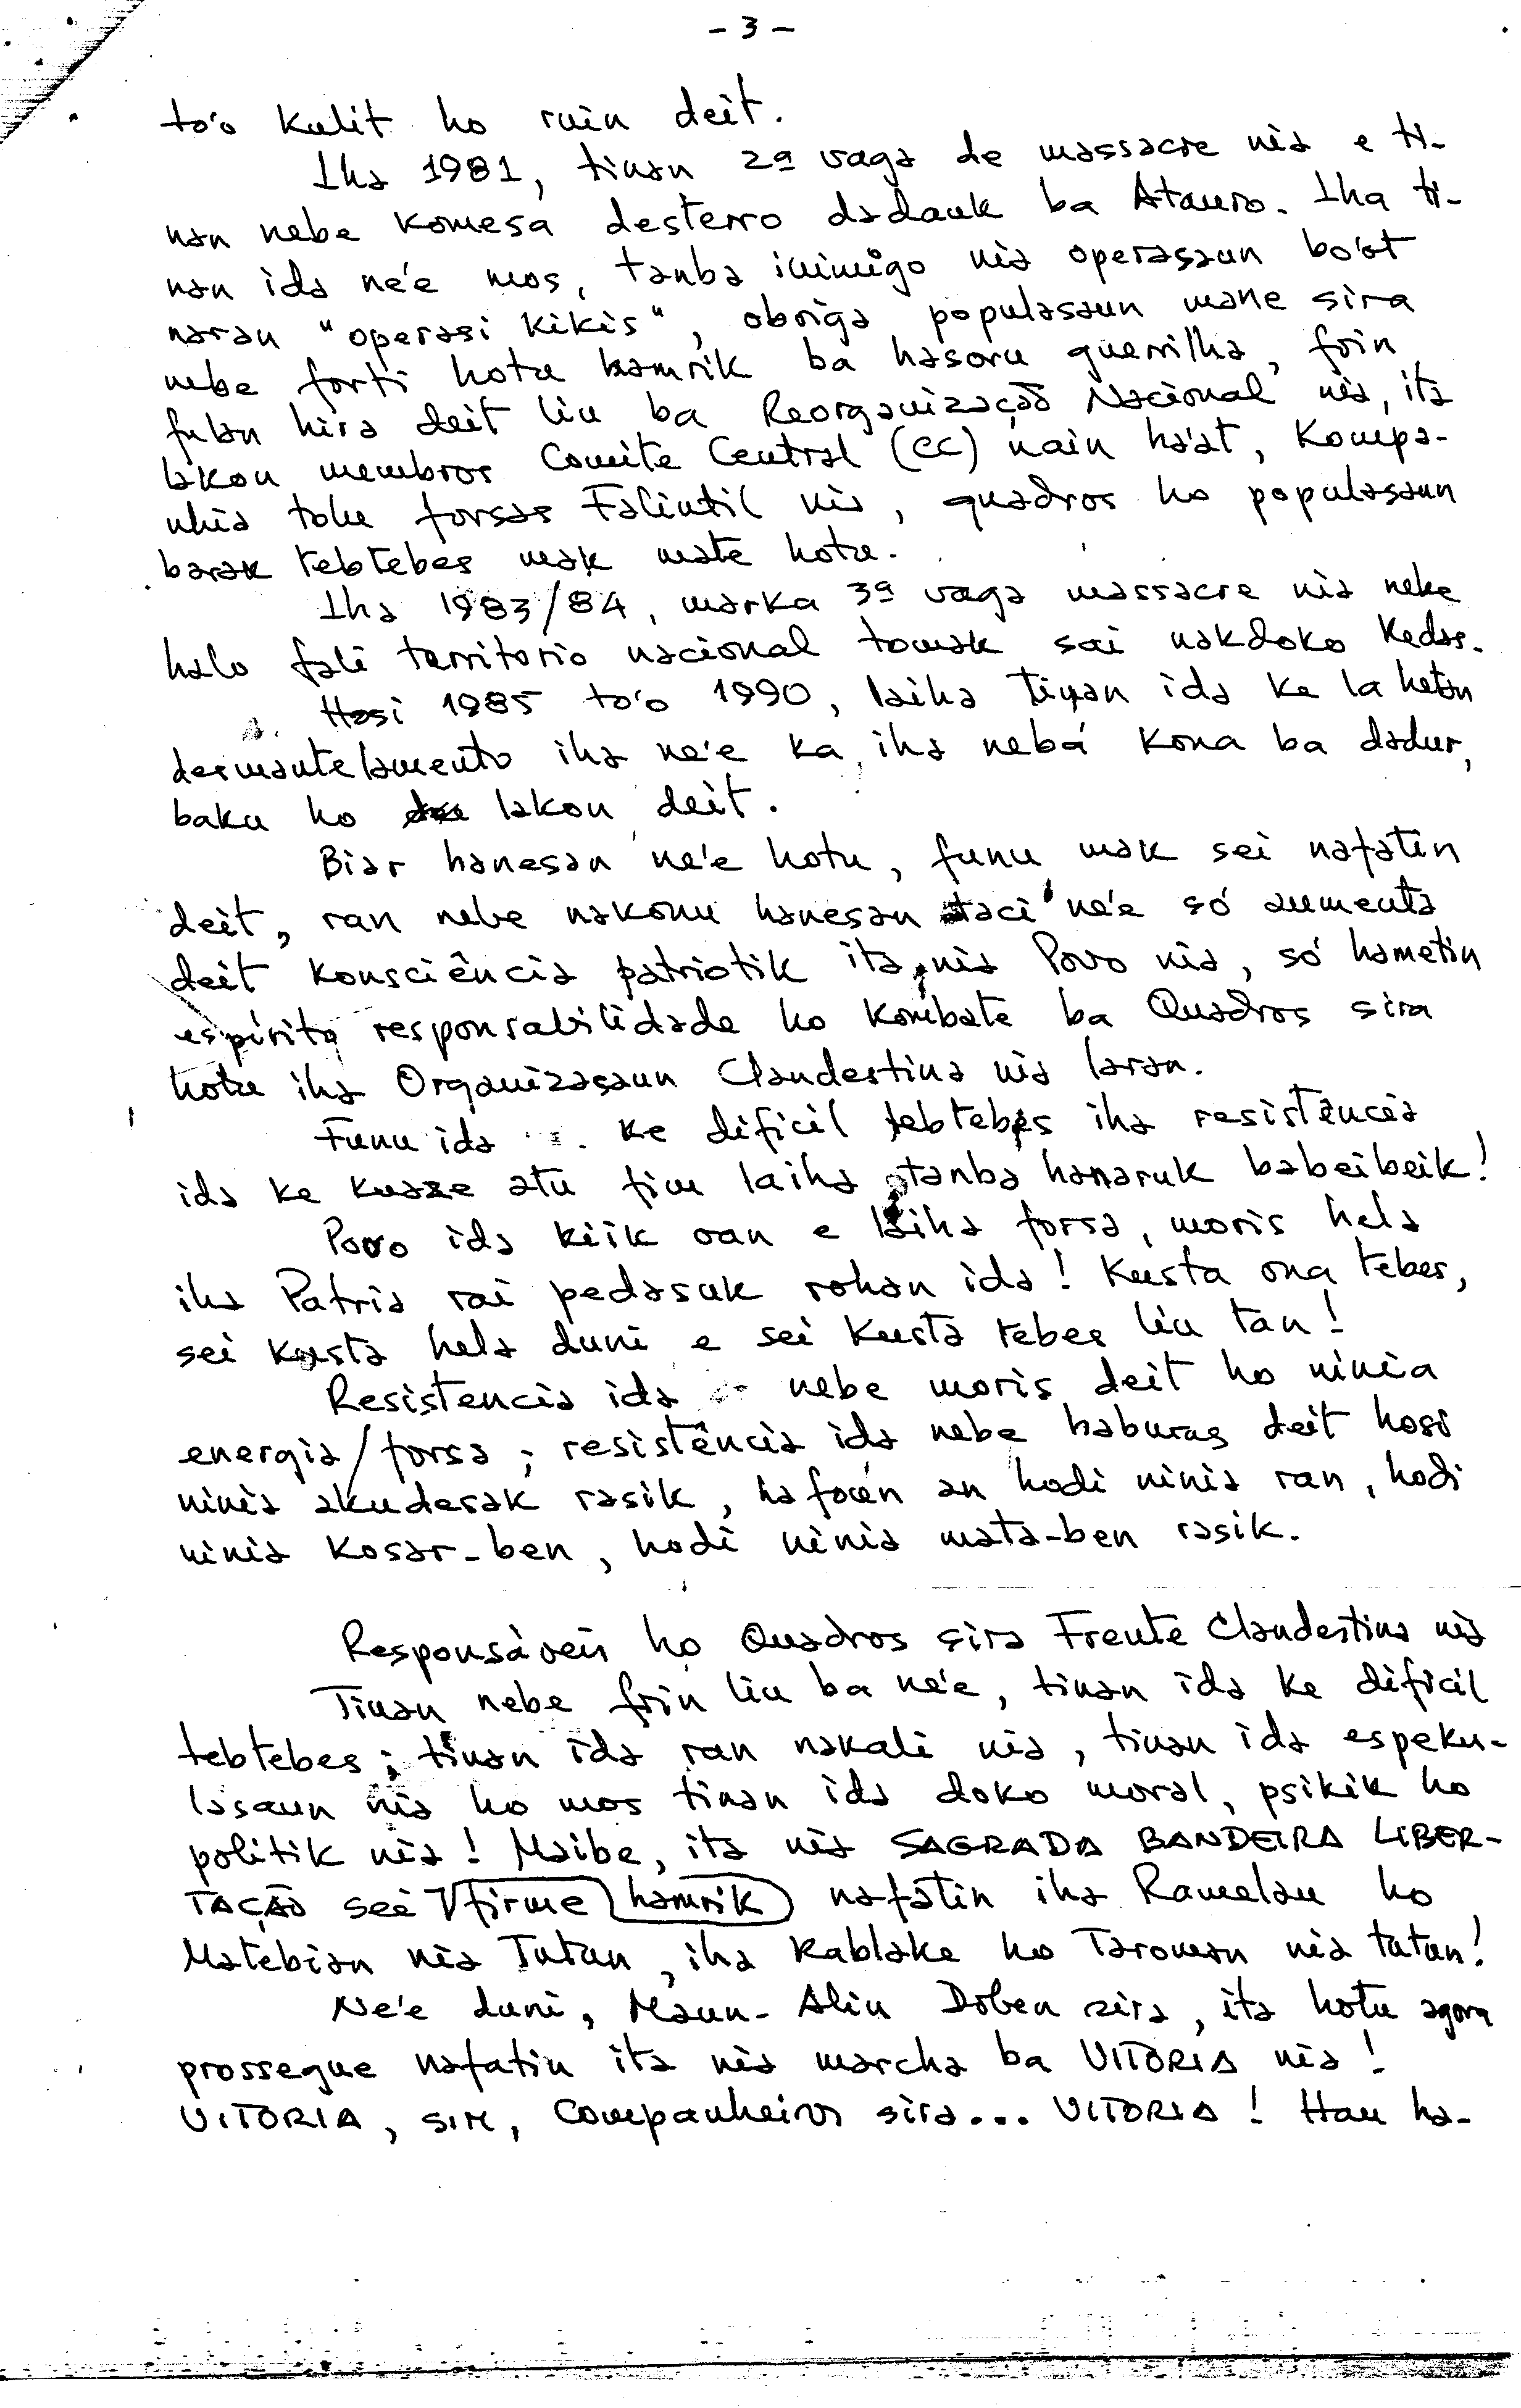 - 3 -
to'o kulit ho ruin deit.
Iha 1981, tinan 2ª vaga de massacre nia e ti-
nan nebe komesa desterro dadauk ba Atauro. Iha ti-
nan ida ne'e mos, tanba inimigo nia operasaun bo'ot
naran "operasi kikis", obriga populasaun mane sira
nebe forti hotu hamrik ba hasoru guerrilha, foin
fulan hira deit liu ba Reorganização Nacional nia, ita
lakon membros Comite Central (CC) nain ha'at, Kompa-
nhia tolu forsas Falintil nia, quadros ho populasaun
barak tebtebes mak mate hotu.
Iha 1983/84, marka 3ª vaga massacre nia nebe
halo fali territorio nacional tomak sai nakdoko kedas.
Hosi 1985 to'o 1990, laiha tinan ida ke la hetan
desmantelamento iha ne'e ka iha nebá kona ba dadur,
baku ho lakon deit.
Biar hanesan ne'e hotu, funu mak sei nafatin
deit, ran nebe nakonu hanesan taci ne'e só aumenta
deit konsciência patriotik ita nia Povo nia, só hametin
espírito responsabilidade ho kombate ba Quadros sira
hotu iha Organizasaun Clandestina nia laran.
Funu ida ke dificil tebtebes iha resistência
ida ke kuaze atu fim laiha tanba hanaruk babeibeik!
Povo ida kiik oan e laiha forsa, moris hela
iha Patria rai pedasuk rohan ida! Kusta ona tebes,
sei kusta hela duni e sei kusta tebes liu tan!
Resistencia ida nebe moris deit ho ninia
energia/forsa; resistência ida nebe haburas deit hosi
ninia akudesak rasik, hafoun an hodi ninia ran, hodi
ninia kosar-ben, hodi ninia mata-ben rasik.
Responsáveis ho Quadros sira Frente Clandestina nia
Tinan nebe foin liu ba ne'e, tinan ida ke dificil
tebtebes; tinan ida ran nakali nia, tinan ida espeku-
lasaun nia ho mos tinan ida doko moral, psikik ho
politik nia! Maibe, ita nia SAGRADA BANDEIRA LIBER-
TAÇÃO sei firme hamrik nafatin iha Ramelau ho
Matebian nia Tutun, iha Kablake ho Taroman nia tutun!
Ne'e duni, Maun-Alin Doben sira, ita hotu agora
prossegue nafatin ita nia marcha ba VITORIA nia!
VITORIA, SIM, Companheiros sira... VITORIA! Hau ha-